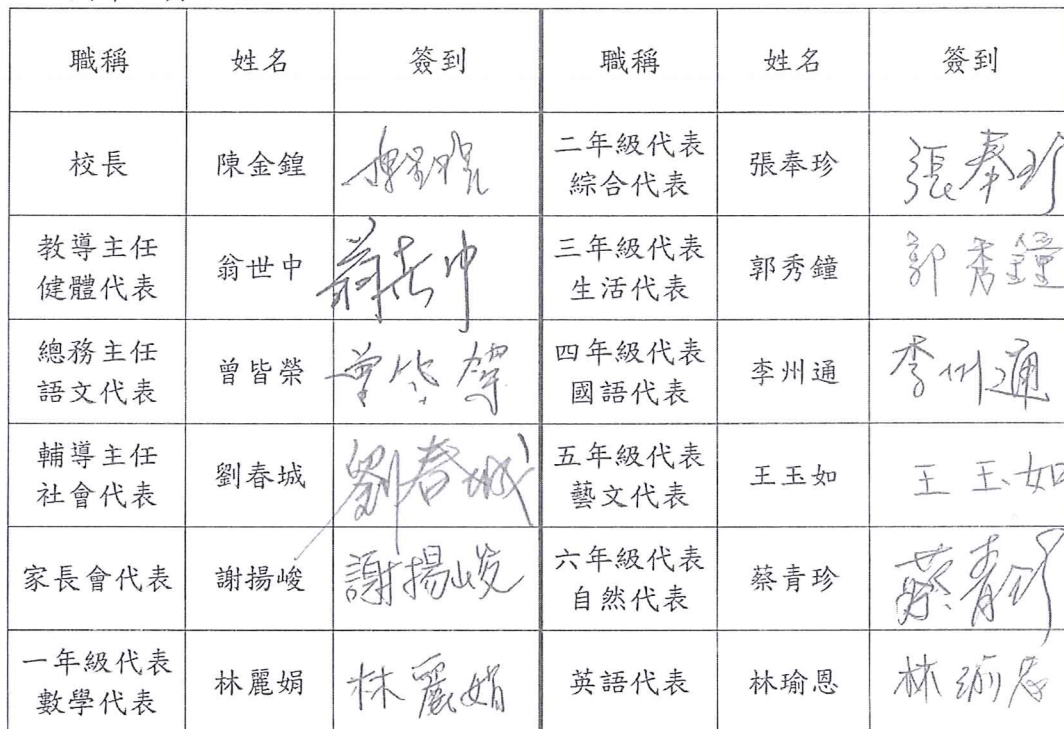 職稱 姓名 簽到 職稱 姓名 簽到
校長 陳金鍠 二年級代表 綜合代表 張奉珍 張奉珍
教導主任 健體代表 翁世中 翁世中 三年級代表 生活代表 郭秀鐘 郭秀鐘
總務主任 語文代表 曾皆榮 四年級代表 國語代表 李州通 李州通
輔導主任 社會代表 劉春城 劉春城 五年級代表 藝文代表 王玉如 王玉如
家長會代表 謝揚峻 謝揚峻 六年級代表 自然代表 蔡青珍 蔡青珍
一年級代表 數學代表 林麗娟 林麗娟 英語代表 林瑜恩 林瑜恩